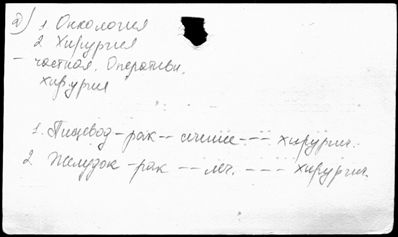 а) 1. Онкология
2. Хирургия
— частная. Оперативн.
хирургия
1. Пищевод – рак –– лечение ––– хирургич.
2. Желудок – рак –– леч. ––– хирургич.